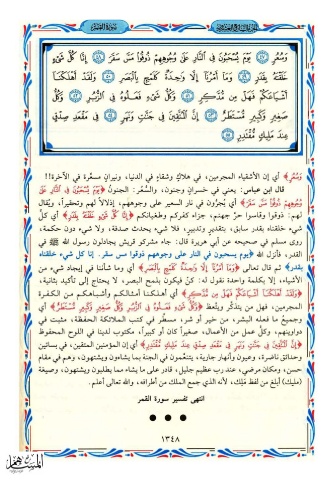 سورة القمر
وَسُعُرٍ ﴿٤٧﴾ يَوْمَ يُسْحَبُونَ فِي النَّارِ عَلَىٰ وُجُوهِهِمْ ذُوقُوا مَسَّ سَقَرَ ﴿٤٨﴾ إِنَّا كُلَّ شَيْءٍ
خَلَقْنَاهُ بِقَدَرٍ ﴿٤٩﴾ وَمَا أَمْرُنَا إِلَّا وَاحِدَةٌ كَلَمْحٍ بِالْبَصَرِ ﴿٥٠﴾ وَلَقَدْ أَهْلَكْنَا
أَشْيَاعَكُمْ فَهَلْ مِن مُّدَّكِرٍ ﴿٥١﴾ وَكُلُّ شَيْءٍ فَعَلُوهُ فِي الزُّبُرِ ﴿٥٢﴾ وَكُلُّ
صَغِيرٍ وَكَبِيرٍ مُّسْتَطَرٌ ﴿٥٣﴾ إِنَّ الْمُتَّقِينَ فِي جَنَّاتٍ وَنَهَرٍ ﴿٥٤﴾ فِي مَقْعَدِ صِدْقٍ
عِندَ مَلِيكٍ مُّقْتَدِرٍ ﴿٥٥﴾
وَسُعُرٍ﴾ أي إن الأشقياء المجرمين، في هلاكٍ وشقاءٍ في الدنيا، ونيرانٍ مسعَّرة في الآخرة!!
قال ابن عباس: يعني في خسرانٍ وجنون، والسُّعُر: الجنونُ ﴿يَوْمَ يُسْحَبُونَ فِي النَّارِ عَلَىٰ
وُجُوهِهِمْ ذُوقُوا مَسَّ سَقَرَ﴾ أي يُجرُّون في نار السعير على وجوههم، إذلالاً لهم وتحقيراً، ويُقال
لهم: ذوقوا وقاسوا حرَّ جهنم، جزاء كفركم وطغيانكم ﴿إِنَّا كُلَّ شَيْءٍ خَلَقْنَاهُ بِقَدَرٍ﴾ أي كلُّ
شيء خلقناه بقدر سابق، بتقديرٍ وتدبيرٍ، فلا شيء يحدث صدفة، ولا شيء دون حكمة،
روى مسلم في صحيحه عن أبي هريرة قال: جاء مشركو قريش يجادلون رسول الله ﷺ في
القدر، فأنزل الله ﴿يوم يسحبون في النار على وجوههم ذوقوا مس سقر. إنا كل شيء خلقناه
بقدر﴾ ثم قال تعالى ﴿وَمَا أَمْرُنَا إِلَّا وَاحِدَةٌ كَلَمْحٍ بِالْبَصَرِ﴾ أي وما شأننا في إيجاد شيء من
الأشياء، إلا بكلمة واحدة نقول له: كنْ فيكون بلمح البصر، لا يحتاج إلى تأكيد بثانية،
﴿وَلَقَدْ أَهْلَكْنَا أَشْيَاعَكُمْ فَهَلْ مِن مُّدَّكِرٍ﴾ أي أهلكنا أمثالكم وأشباهكم من الكفرة
المجرمين، فهل من يتذكَّر ويتعظ ﴿وَكُلُّ شَيْءٍ فَعَلُوهُ فِي الزُّبُرِ وَكُلُّ صَغِيرٍ وَكَبِيرٍ مُّسْتَطَرٌ﴾ أي
وجميعُ ما فعله البشر، من خير أو شر، مسطَّر في كتب الملائكة الحفظة، مثبت في
دواوينهم، وكلُّ عملٍ من الأعمال، صغيراً كان أو كبيراً، مكتوب لدينا في اللوح المحفوظ
﴿إِنَّ الْمُتَّقِينَ فِي جَنَّاتٍ وَنَهَرٍ فِي مَقْعَدِ صِدْقٍ عِندَ مَلِيكٍ مُّقْتَدِرٍ﴾ أي إن المؤمنين المتقين، في بساتين
وحدائق ناضرة، وعيون وأنهار جارية، يتنعَّمون في الجنة بما يشاءون ويشتهون، وهم في مقام
حسن، ومكان مرضي، عند رب عظيم جليل، قادر على ما يشاء مما يطلبون ويشتهون، وصيغة
(مليك) أبلغ من لفظ مَلِك، لأنه الذي جمع الملك من أطرافه، والله تعالى أعلم.
انتهى تفسير سورة القمر
١٣٤٨